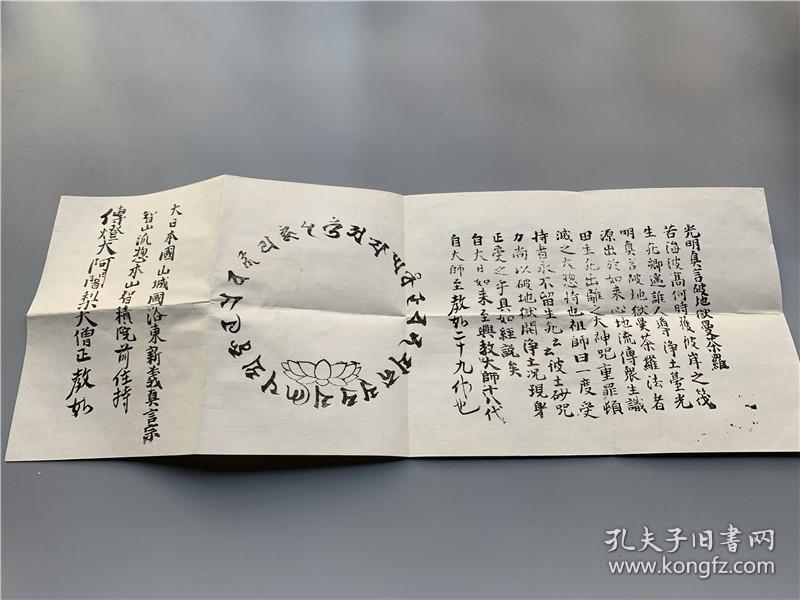 光明真言破地獄曼荼羅
苦海彼高何時後彼岸之筏
生死鄉遙誰人導淨土臺光
明真言破地獄曼荼羅法者
源出於如来心地流傳衆生識
田生死出離之大神咒重罪頓
滅之大惣持也祖師曰一度受
持者永不留生死云彼土砂咒
力尚以破地獄開淨土況現身
正受之乎具如經說矣
自大日如来至興教大師十八代
自大師至教如二十九代也
大日本國山城國洛東新義真言宗
智山流惣本山智積院前住持
傳燈大阿闍梨大僧正教如
孔夫子旧书网
www.kongfz.com